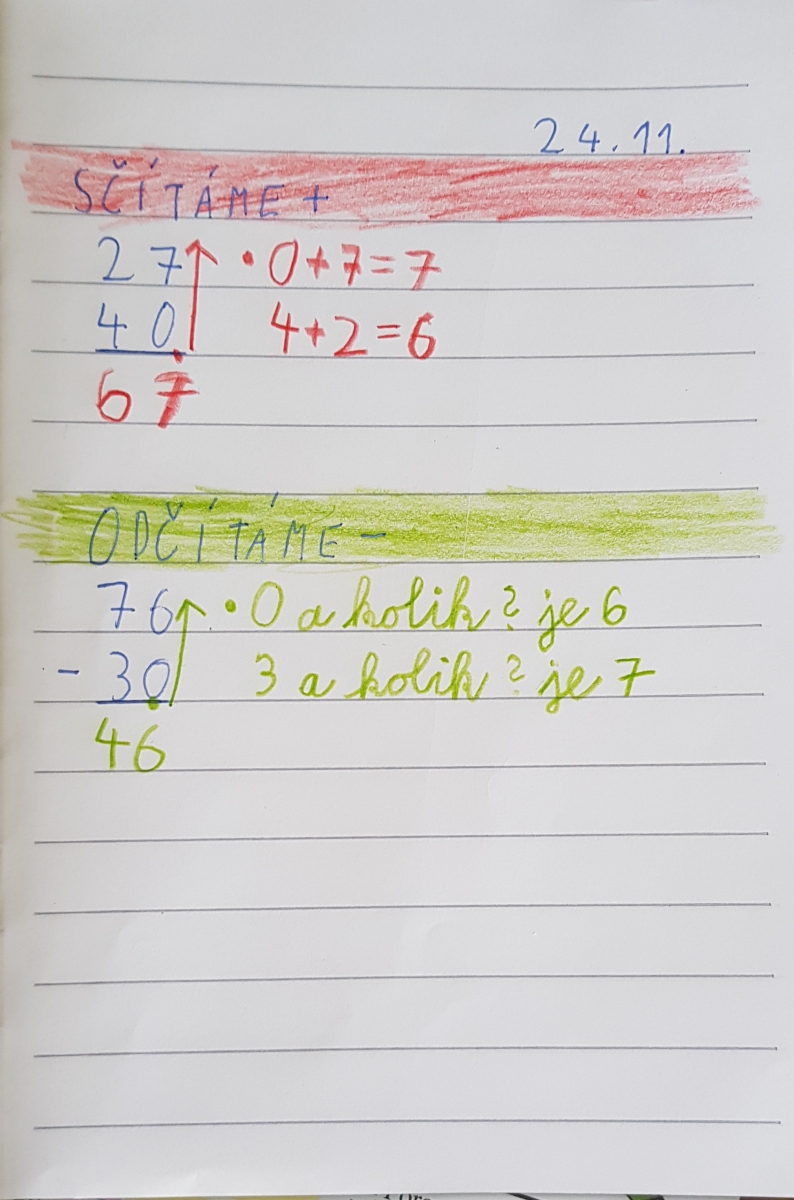 24.11.
SČÍTÁME +
27 • 0+7=7
40 4+2=6
67
ODČÍTÁME -
76 • 0 a kolik? je 6
- 30 3 a kolik? je 7
46